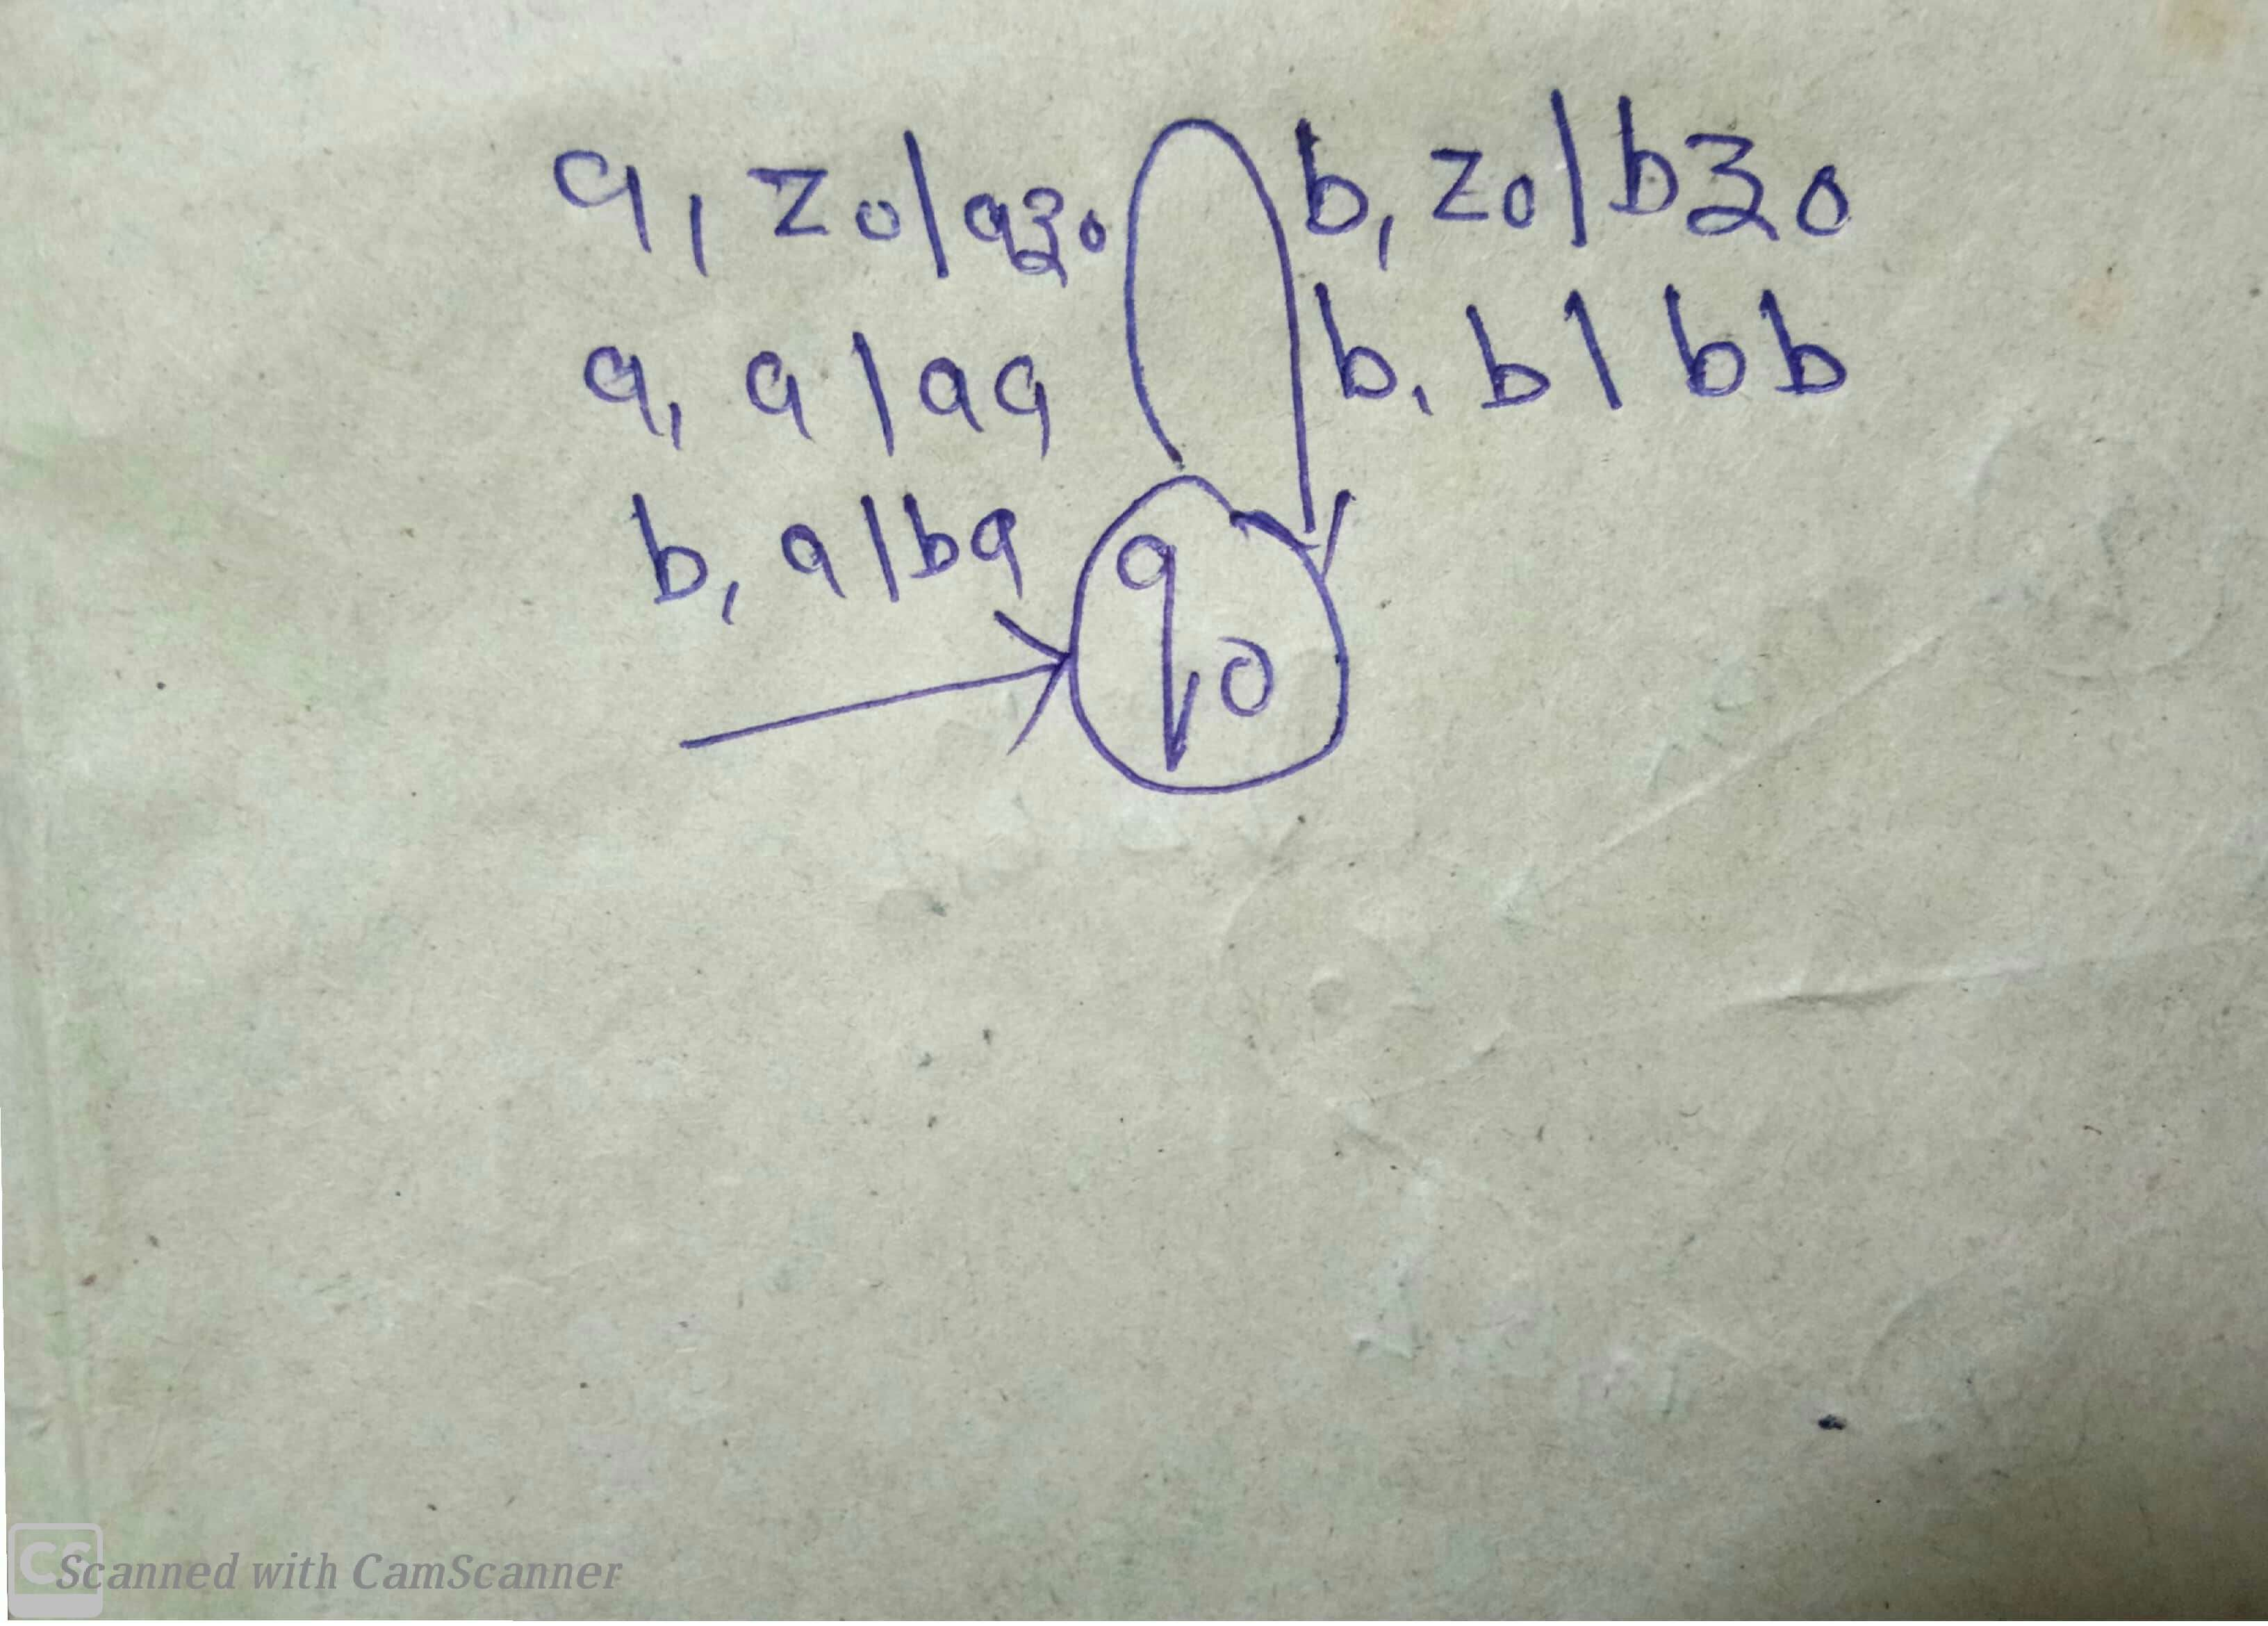 a, z0|az0
a, a|aa
b, a|ba
b, z0|bz0
b, b|bb
q0
CS Scanned with CamScanner